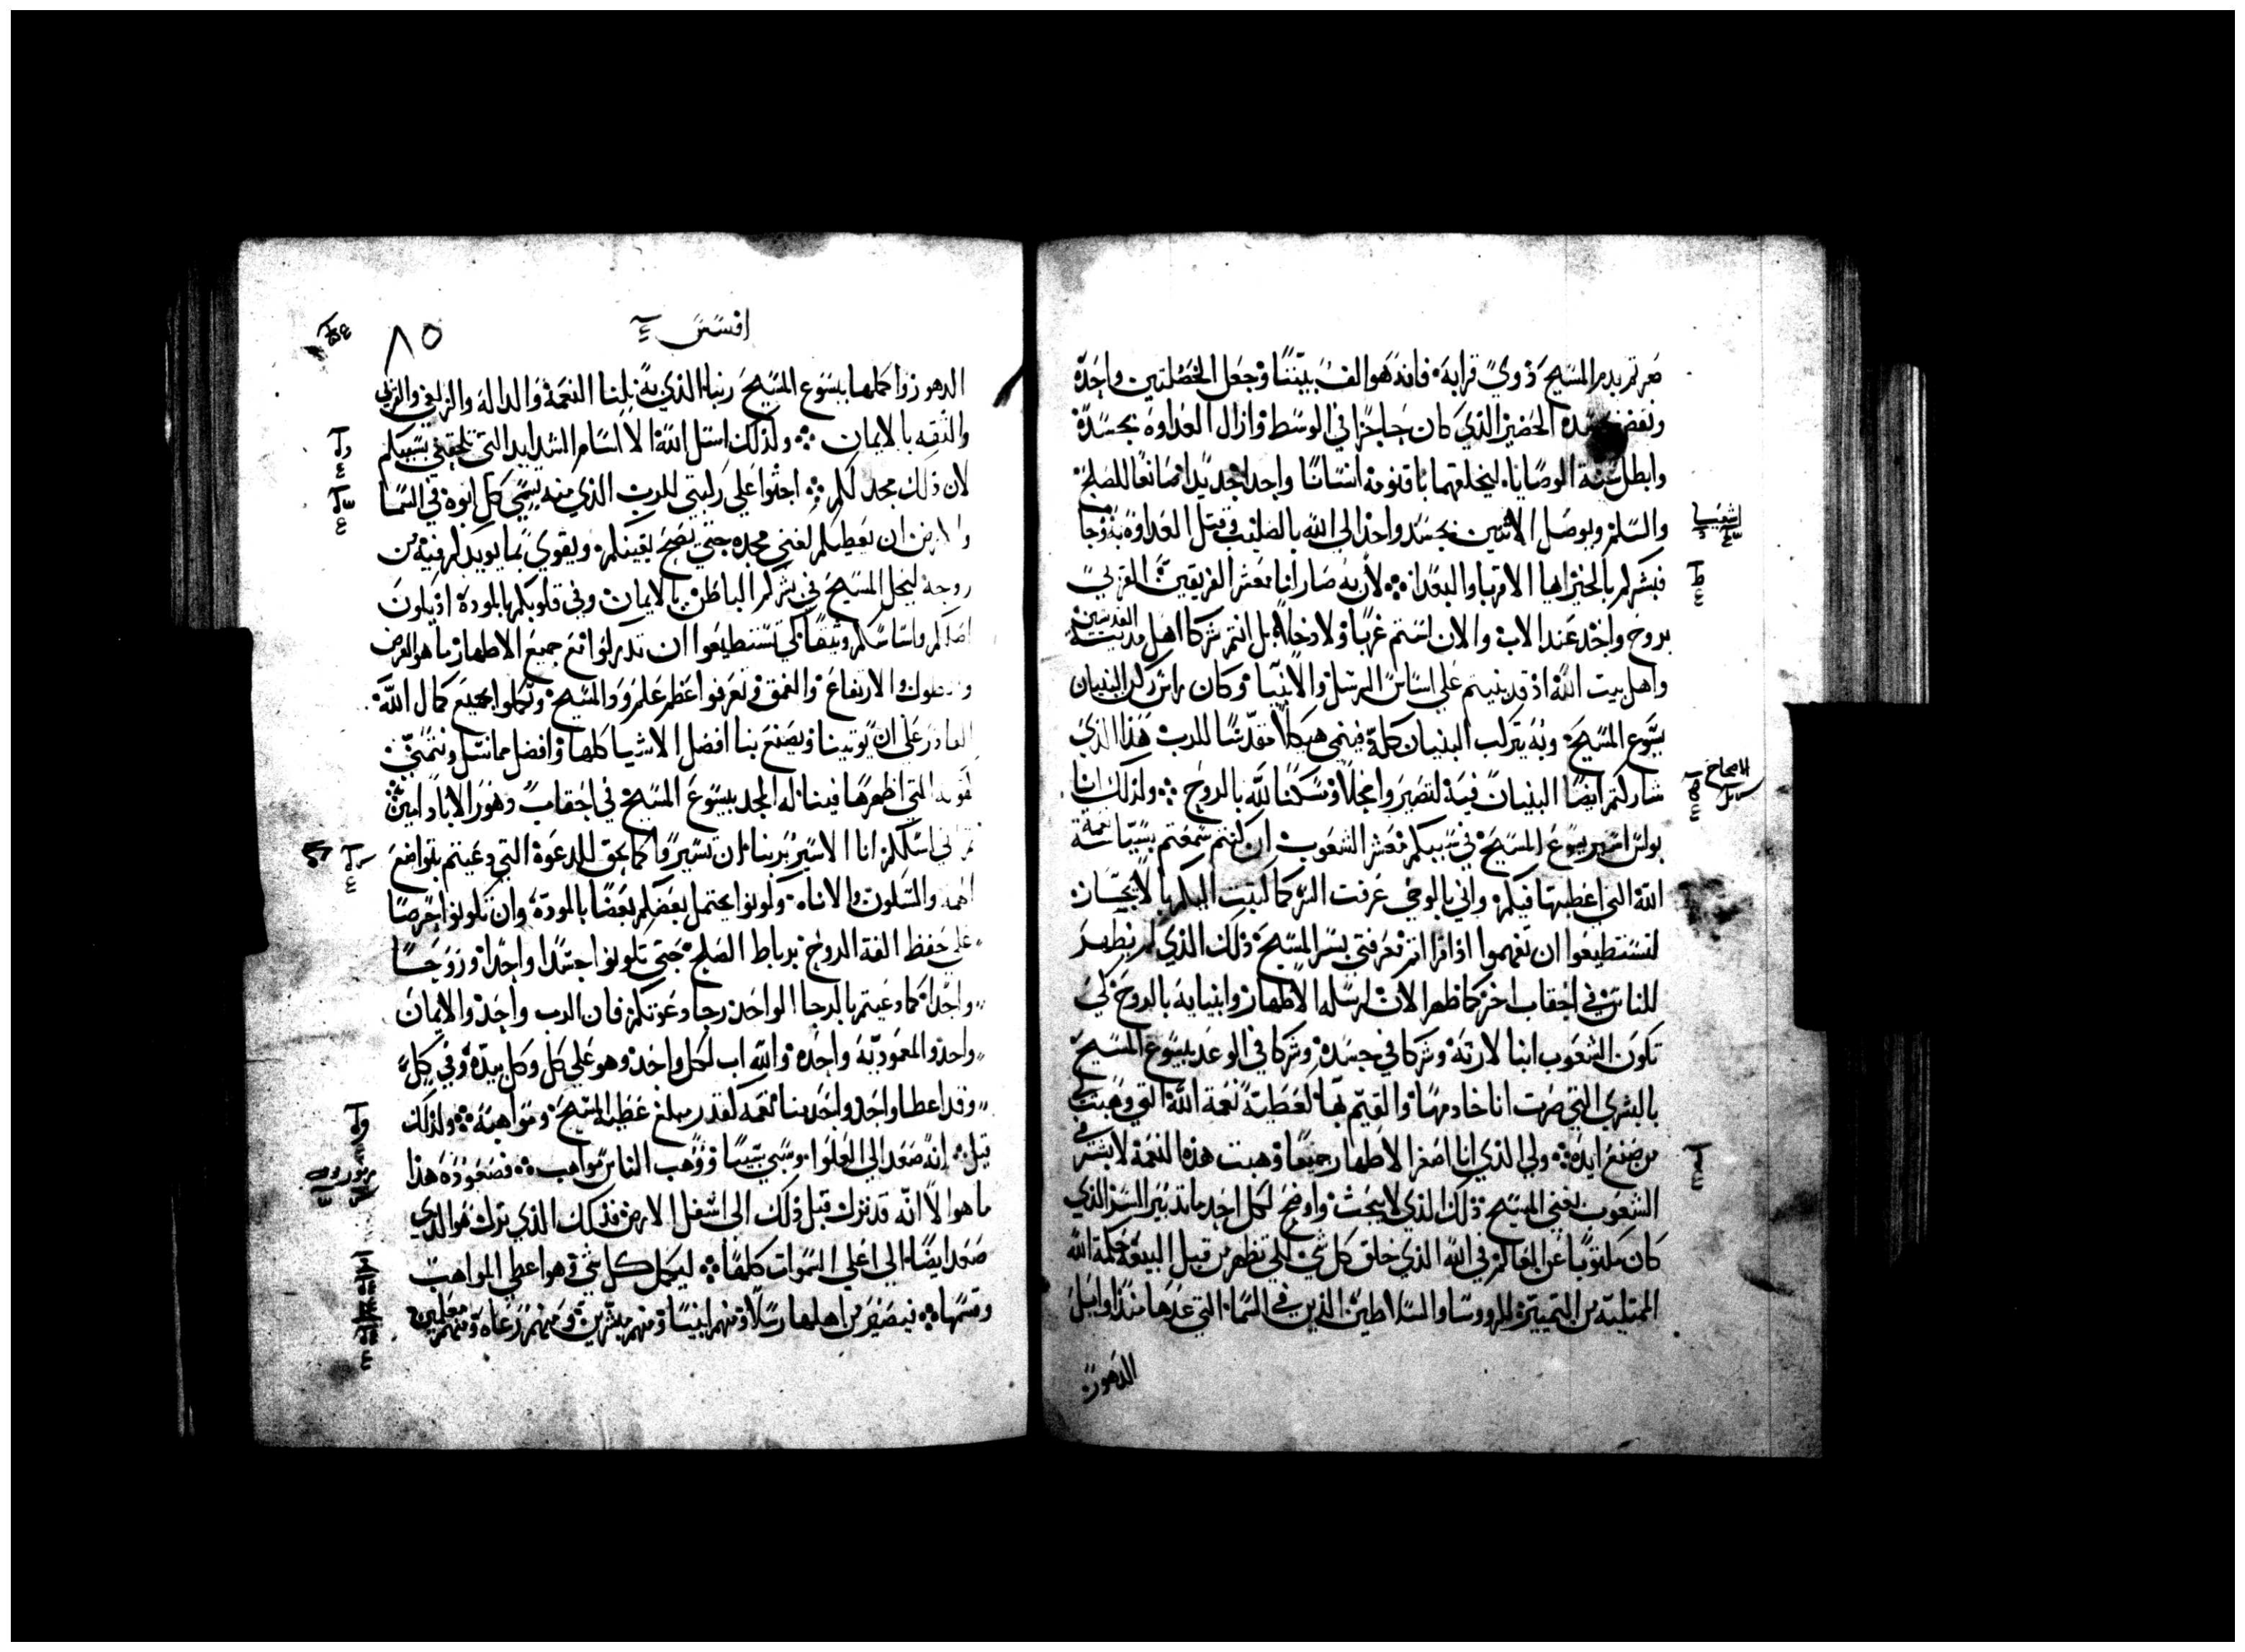 صرتم بدم المسيح ذوي قرابة فانه هو الف بيننا وجعل الخصلتين واحدة
ونقض بجسده الحضير الذي كان حاجزا في الوسط وازال العداوه بجسده
وابطل سنة الوصايا ليخلقهما باقنومه انسانا واحدا جديدا صانعا للصلح
والسلم ويوصل الاثنين بجسد واحد الى الله بالصليب وقتل العداوة به وجا
فبشركم بالخير ايها الاقربا والبعدا لان به صار لنا معشر الفريقين القربى
بروح واحد عند الاب والان لستم غربا ولا دخلا بل انتم شركا اهل مدينة القديسين
واهل بيت الله اذ قد بنيتم على اساس الرسل والانبيا وكان راس ركن البنيان
يسوع المسيح وبه يتركب البنيان كله فينمى هيكلا مقدسا للرب هذا الذي
شاركتم ايضا البنيان فيه لتصيروا محلا ومسكنا لله بالروح ولذلك انا
بولس اسير يسوع المسيح في سببكم معشر الشعوب ان كنتم سمعتم بسياسة نعمة
الله التي اعطيتها فيكم واني بالوحي عرفت السر كما كتبت اليكم بالايجاز
لتستطيعوا ان تفهموا اذا قراتم معرفتي بسر المسيح ذلك الذي لم يظهر
للناس في احقاب اخر كما ظهر الان لرسله الاطهار وانبيايه بالروح كي
تكون الشعوب ابنا لارثه وشركا في جسده وشركا في الوعد بيسوع المسيح
بالبشرى التي صرت انا خادمها والقيم بها لعطية نعمة الله التي وهبت لي
من صنع ايده ولي الذي انا اصغر الاطهار جميعا وهبت هذه النعمة لابشر في
الشعوب بغنى المسيح ذلك الذي لا يبحث واوضح لكل احد ما تدبير السر الذي
كان مكتوبا عن العالم في الله الذي خلق كل شي لكي تظهر من قبل البيعة حكمة الله
الممتلية من التمييز للرووسا والسلاطين الذين في السما التي عدها منذ اوايل
الدهور
اشعيا
الاصحاح
افسس
٨٥
الدهور واكملها بيسوع المسيح ربنا الذي به نلنا النعمة والدالة والزلفى والقربى
والثقه بالايمان ولذلك اسئل الله الا اسام الشدايد التي تلحقني بسببكم
لان ذلك مجد لكم اجثوا على ركبتي للرب الذي منه يسمى كل ابوة في السما
والارض ان يعطيكم لغنى مجده حتى يصح يقينكم ويقوي بما يويدكم فيه من
روحه ليحل المسيح في بشركم الباطن بالايمان وفي قلوبكم بالمودة اذ يكون
اصلكم واساسكم وثيقا كي تستطيعوا ان تدركوا مع جميع الاطهار ما هو العرض
والطول والارتفاع والعمق وتعرفوا عظم علم ود المسيح وتكملوا بجميع كمال الله
القادر على ان يوتينا ويصنع بنا افضل الاشيا كلها وافضل مما نسل ونتمنى
كقوته التي اظهرها فينا له المجد بيسوع المسيح في احقاب دهور الاباد امين
ثم اني اسلكم انا الاسير بربنا ان تسيروا كما يحق للدعوة التي دعيتم بتواضع
الهمه والسكون والاناه وكونوا يحتمل بعضكم بعضا بالمودة وان تكونوا حرصا
على حفظ الفة الروح برباط الصلح حتى تكونوا جسدا واحدا وروحا
واحدا كما دعيتم بالرجا الواحد رجا دعوتكم فان الرب واحد والايمان
واحد والمعمودية واحده والله اب لكل واحد وهو على كل وكل بيده وفي كل
وقد اعطا واحد واحد منا نعمه كقدر مبلغ عطيه المسيح ومواهبه ولذلك
قيل انه صعد الى العلوا وسبى سبيا ووهب الناس مواهب فصعوده هذا
ما هو الا انه قد نزل قبل ذلك الى اسفل الارض فذلك الذي نزل هو الذي
صعد ايضا الى اعلى السموات كلها ليكمل كل شي وهو اعطى المواهب
وقسمها فيصير من اهلها رسلا ومنهم انبيا ومنهم مبشرين ومنهم رعاه ومنهم معلمين
مزمور